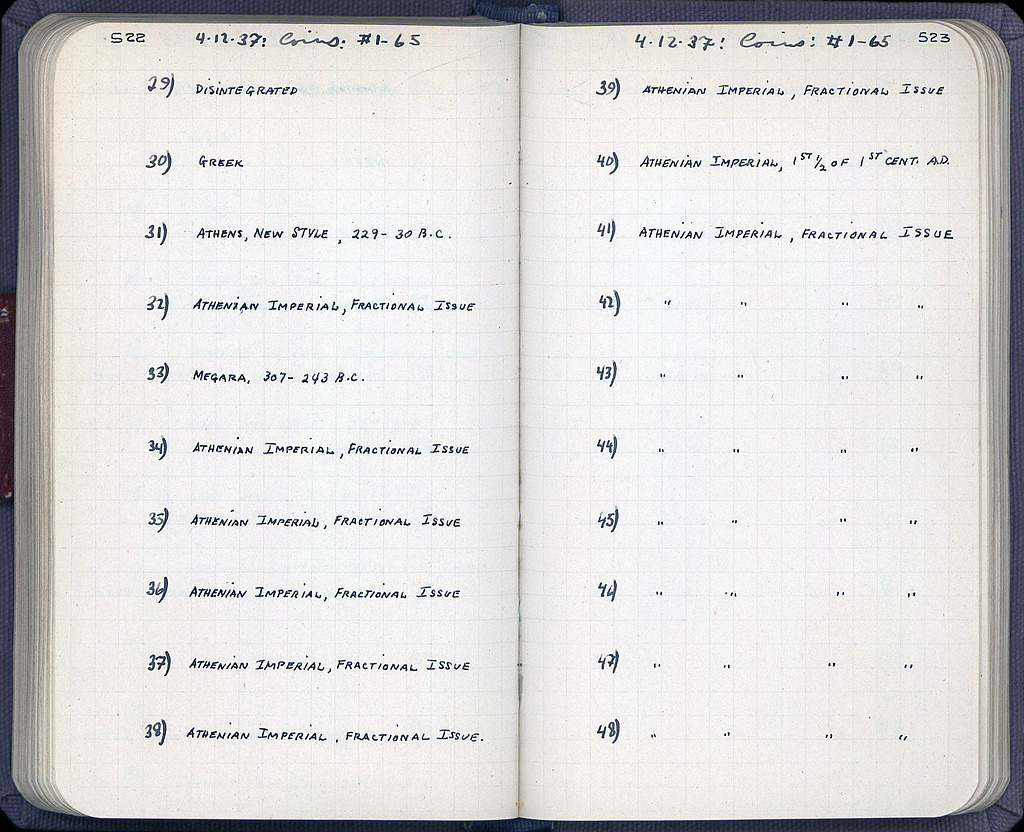 522 4·12·37: Coins: #1-65
29) DISINTEGRATED
30) GREEK
31) ATHENS, NEW STYLE, 229-30 B.C.
32) ATHENIAN IMPERIAL, FRACTIONAL ISSUE
33) MEGARA, 307-243 B.C.
34) ATHENIAN IMPERIAL, FRACTIONAL ISSUE
35) ATHENIAN IMPERIAL, FRACTIONAL ISSUE
36) ATHENIAN IMPERIAL, FRACTIONAL ISSUE
37) ATHENIAN IMPERIAL, FRACTIONAL ISSUE
38) ATHENIAN IMPERIAL, FRACTIONAL ISSUE.
4·12·37: Coins: #1-65 523
39) ATHENIAN IMPERIAL, FRACTIONAL ISSUE
40) ATHENIAN IMPERIAL, 1ST 1/2 OF 1ST CENT. A.D.
41) ATHENIAN IMPERIAL, FRACTIONAL ISSUE
42) " " " "
43) " " " "
44) " " " "
45) " " " "
46) " " " "
47) " " " "
48) " " " "